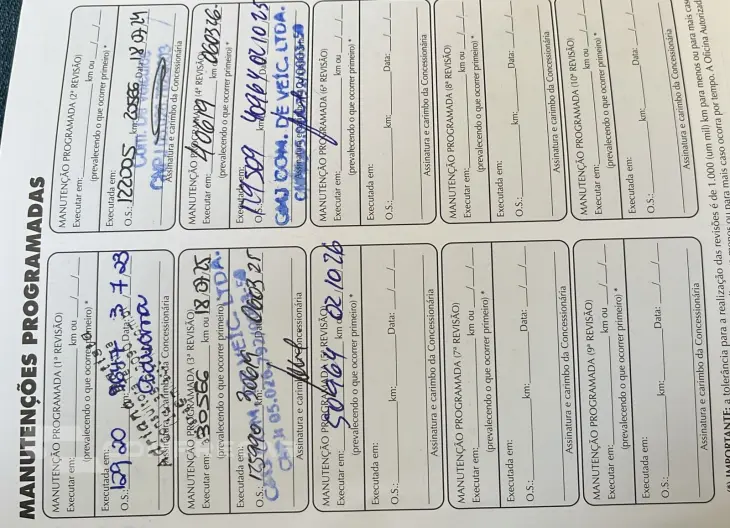 MANUTENÇÕES PROGRAMADAS
MANUTENÇÃO PROGRAMADA (1ª REVISÃO)
Executar em: km ou / /
(prevalecendo o que ocorrer primeiro) *
Executada em:
O.S.: 12920 km: Data: 3 / 7 / 23
Assinatura e carimbo da Concessionária
MANUTENÇÃO PROGRAMADA (2ª REVISÃO)
Executar em: km ou / /
(prevalecendo o que ocorrer primeiro) *
Executada em:
O.S.: 122005 km: 20566 Data: 18 07 24
Assinatura e carimbo da Concessionária
MANUTENÇÃO PROGRAMADA (3ª REVISÃO)
Executar em: 30566 km ou 18 07 25
(prevalecendo o que ocorrer primeiro) *
Executada em:
O.S.: 30619 06 03 25
Assinatura e carimbo da Concessionária
MANUTENÇÃO PROGRAMADA (4ª REVISÃO)
Executar em: 40619 km 06 03 26
(prevalecendo o que ocorrer primeiro) *
Executada em:
O.S.: 129509 40464 02 10 25
COM. DE VEÍC. LTDA.
MANUTENÇÃO PROGRAMADA (5ª REVISÃO)
Executar em: 50464 km 02 10 26
(prevalecendo o que ocorrer primeiro) *
Executada em:
O.S.: km: Data: / /
Assinatura e carimbo da Concessionária
MANUTENÇÃO PROGRAMADA (6ª REVISÃO)
Executar em: km ou / /
(prevalecendo o que ocorrer primeiro) *
Executada em:
O.S.: km: Data: / /
Assinatura e carimbo da Concessionária
MANUTENÇÃO PROGRAMADA (7ª REVISÃO)
Executar em: km ou / /
(prevalecendo o que ocorrer primeiro) *
Executada em:
O.S.: km: Data: / /
Assinatura e carimbo da Concessionária
MANUTENÇÃO PROGRAMADA (8ª REVISÃO)
Executar em: km ou / /
(prevalecendo o que ocorrer primeiro) *
Executada em:
O.S.: km: Data: / /
Assinatura e carimbo da Concessionária
MANUTENÇÃO PROGRAMADA (9ª REVISÃO)
Executar em: km ou / /
(prevalecendo o que ocorrer primeiro) *
Executada em:
O.S.: km: Data: / /
Assinatura e carimbo da Concessionária
MANUTENÇÃO PROGRAMADA (10ª REVISÃO)
Executar em: km ou / /
(prevalecendo o que ocorrer primeiro) *
Executada em:
O.S.: km: Data: / /
Assinatura e carimbo da Concessionária
(*) IMPORTANTE: a tolerância para a realização das revisões é de 1.000 (um mil) km para menos ou para mais
menos ou para mais caso ocorra por tempo. A Oficina